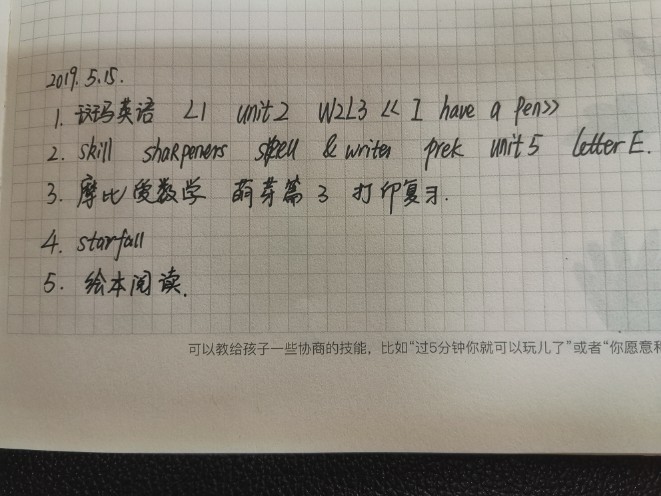 2019.5.15.
1. 斑马英语 L1 unit2 W2L3 《I have a Pen》
2. skill sharpeners spell & writer prek unit5 letter E.
3. 摩比爱数学 萌芽篇 3 打印复习.
4. starfall
5. 绘本阅读.
可以教给孩子一些协商的技能，比如“过5分钟你就可以玩儿了”或者“你愿意和